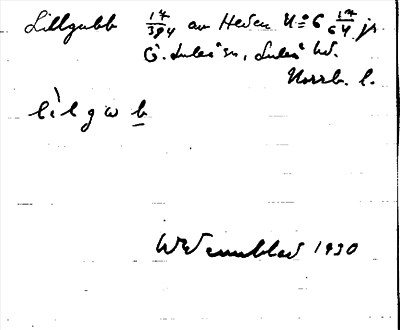 Lillgubb 17/384 av Heden N:o 6 17/64 jr
Ö. Luleå sn, Luleå hd.
Norrb. l.
lìlgωb
Wennblad 1930